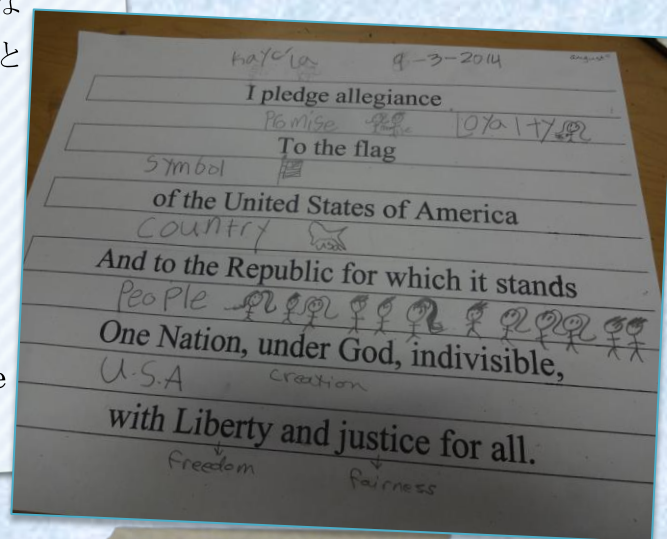 な
と
Kayc/la 9-3-2014
I pledge allegiance
Promise Loyalty
To the flag
Symbol
of the United States of America
Country
USA
And to the Republic for which it stands
People
One Nation, under God, indivisible,
U.S.A creation
e
with Liberty and justice for all.
freedom fairness